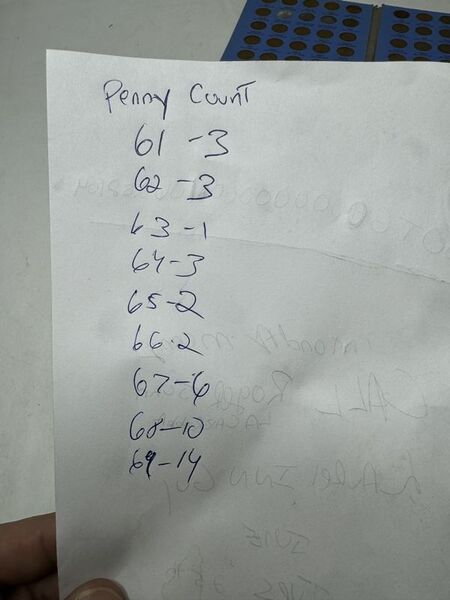 Penny Count
61 - 3
62 - 3
63 - 1
64 - 3
65 - 2
66 - 2
67 - 6
68 - 10
69 - 14